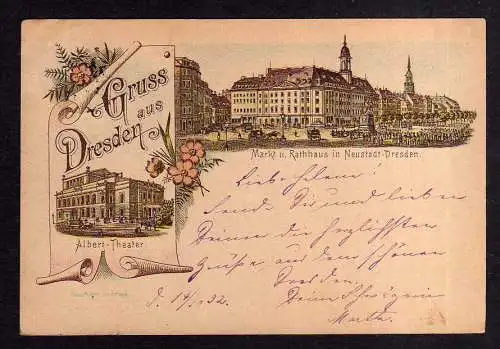 Gruss
aus
Dresden
Markt u. Rathhaus in Neustadt-Dresden.
Albert-Theater.
Liebe
Sende Dir und lieben
Deinen die herzlichsten
Grüße aus dem schönen
Dresden.
Deine Schwägerin
Martha.
D. 14/ 92.